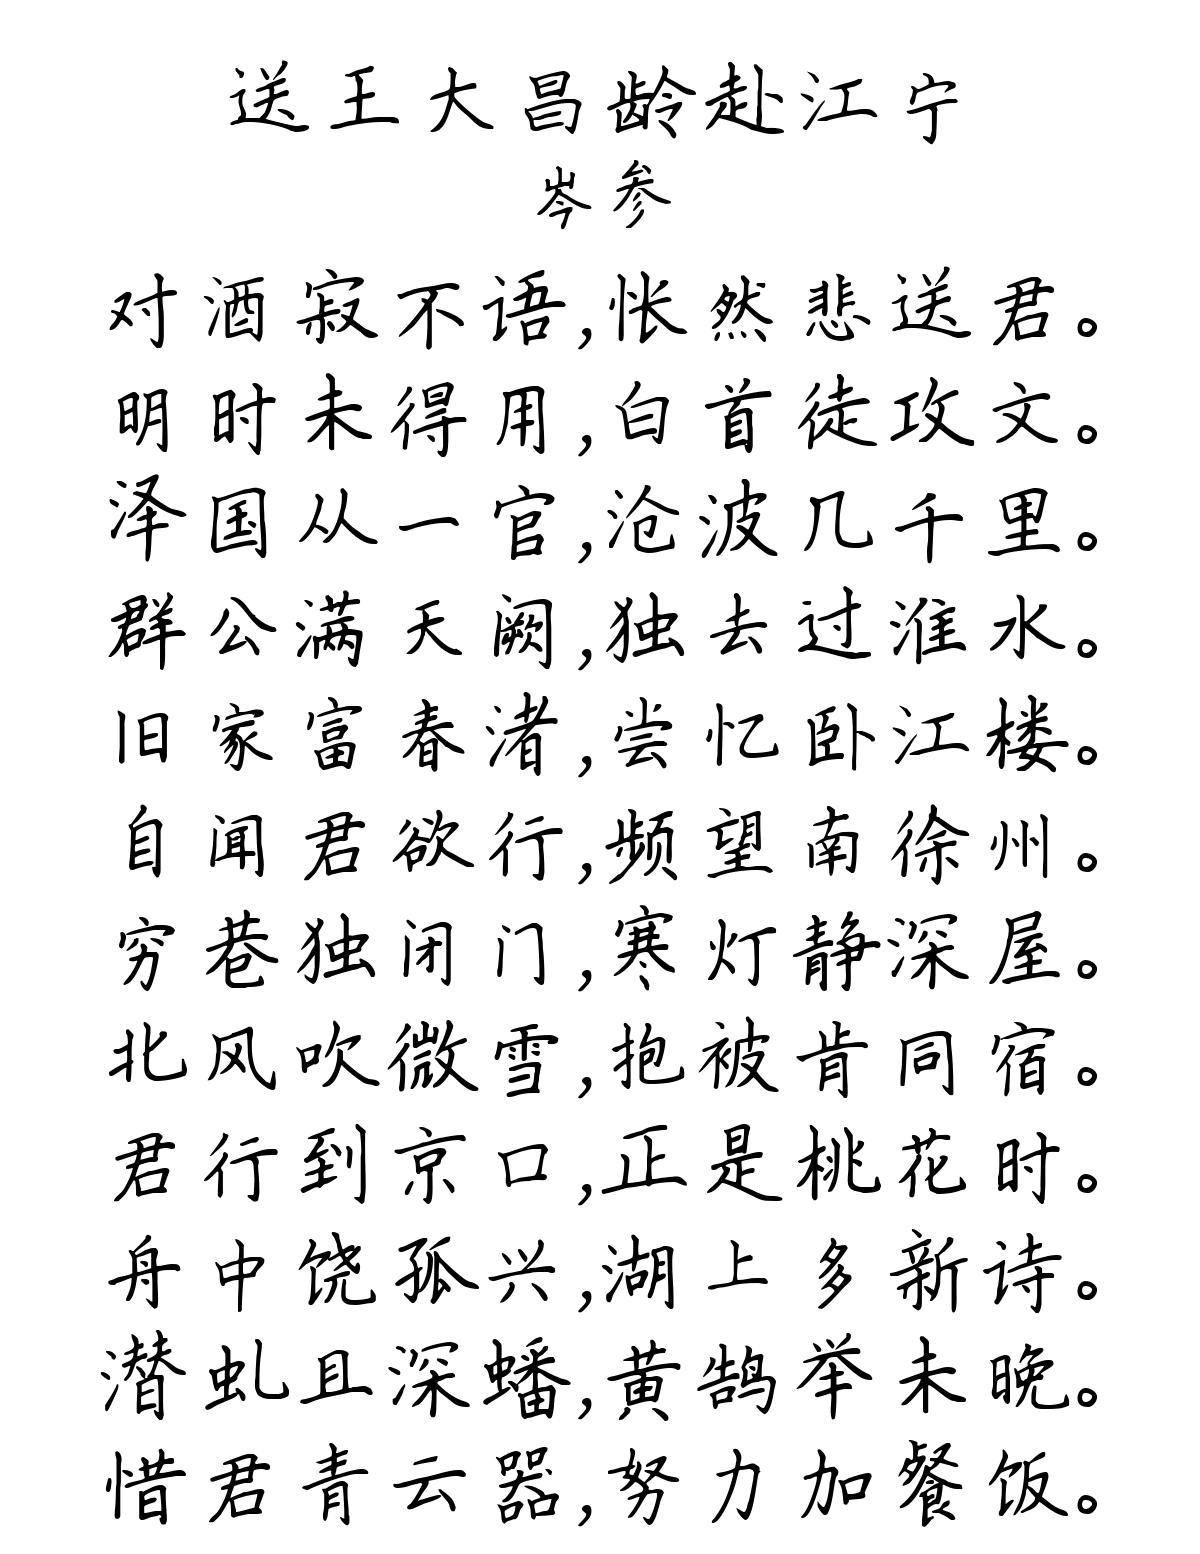 送王大昌龄赴江宁
岑参
对酒寂不语,怅然悲送君。
明时未得用,白首徒攻文。
泽国从一官,沧波几千里。
群公满天阙,独去过淮水。
旧家富春渚,尝忆卧江楼。
自闻君欲行,频望南徐州。
穷巷独闭门,寒灯静深屋。
北风吹微雪,抱被肯同宿。
君行到京口,正是桃花时。
舟中饶孤兴,湖上多新诗。
潜虬且深蟠,黄鹄举未晚。
惜君青云器,努力加餐饭。